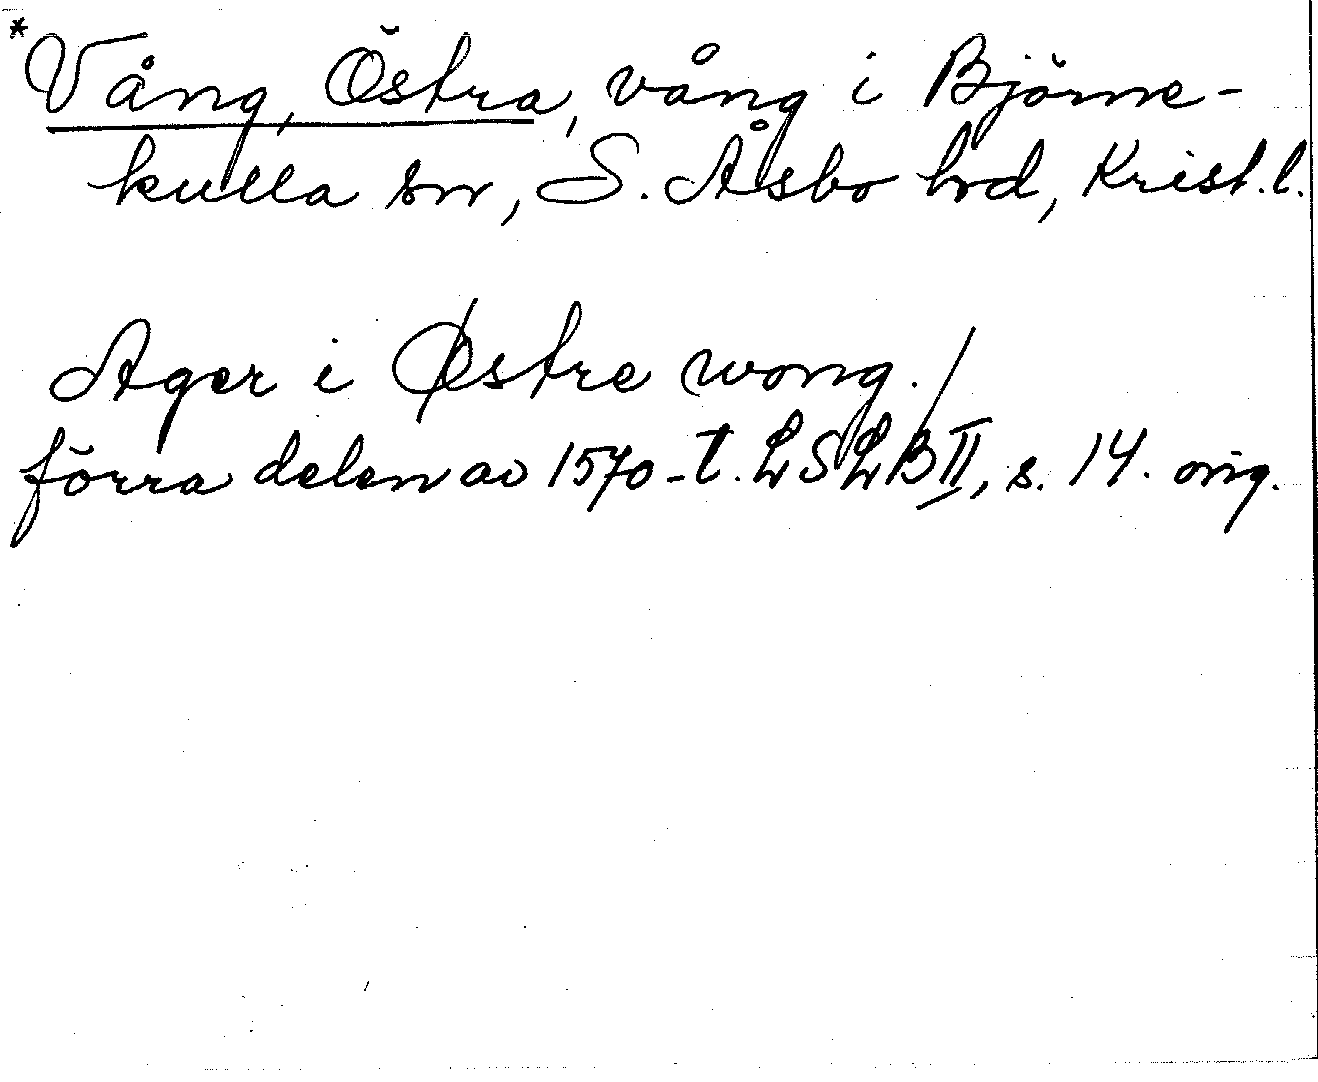 *Vång, Östra, vång i Björne-
kulla sn, S. Åsbo hd, Krist. l.
Ager i Østre wong. /
förra delen av 1570-t. LSLB II, s. 14. orig.